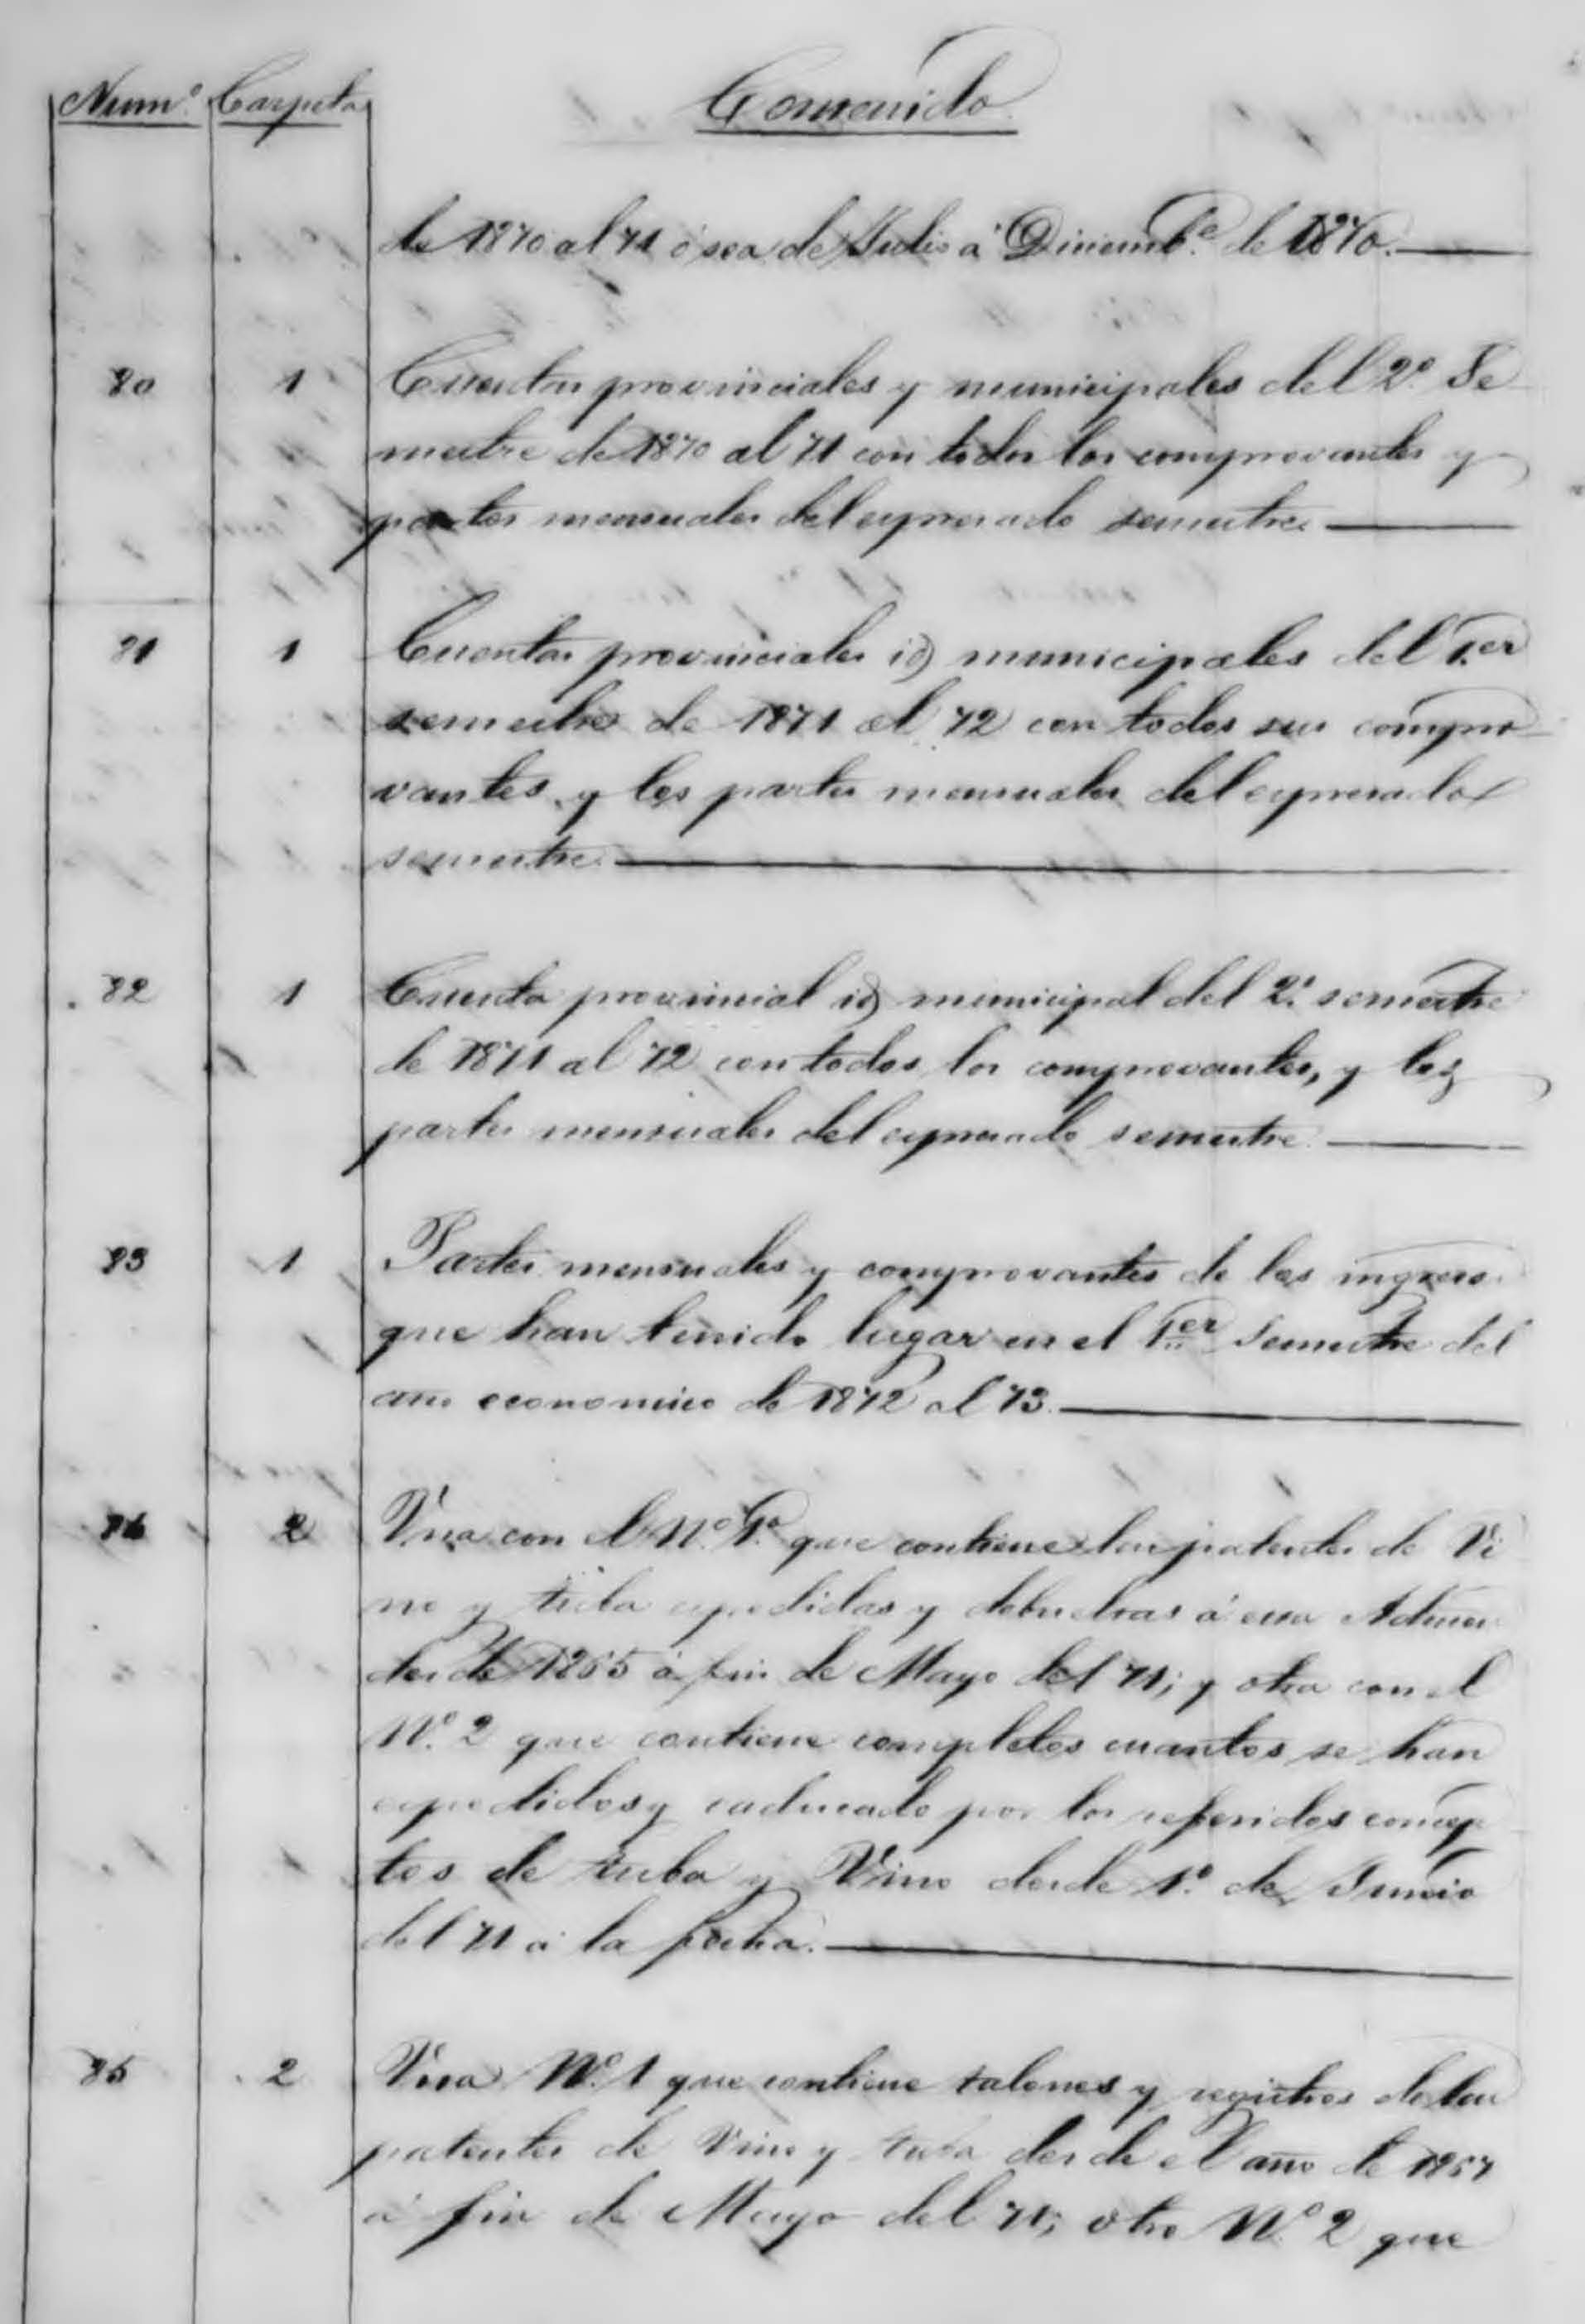 Num.º Carpeta Contenido
de 1870 al 71 ó sea de Julio á Diciemb.e de 1870.
80 1 Cuentas provinciales y municipales del 2.º Se
mestre de 1870 al 71 con todos los comprovantes y
partes mensuales del espresado semestre
81 1 Cuentas provinciales id municipales del 1.er
semestre de 1871 al 72 con todos sus compro
vantes y los partes mensuales del espresado
semestre.
82 1 Cuenta provincial id municipal del 2.º semestre
de 1871 al 72 con todos los comprovantes, y los
partes mensuales del espresado semestre.
83 1 Partes mensuales y comprovantes de los ingresos
que han tenido lugar en el 1.er Semestre del
año economico de 1872 al 73.
84 2 Una con el N.º 1.º que contiene las patentes de Vi
no y tuba espedidas y debueltas á esa Admon
desde 1865 á fin de Mayo del 71; y otra con el
N.º 2 que contiene completos cuantos se han
espedidos y caducado por los referidos concep
tos de tuba y Vino desde 1.º de Junio
del 71 á la fecha.
85 2 Una N.º 1 que contiene talones y registros de las
patentes de Vino y tuba desde el año de 1867
á fin de Mayo del 71; otro N.º 2 que